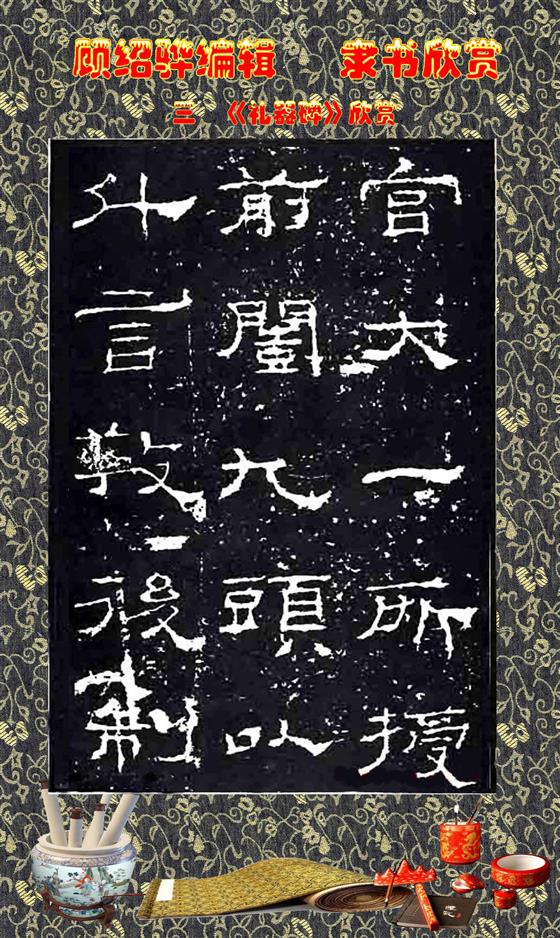 顾绍骅编辑 隶书欣赏
三 《礼器碑》欣赏
宮大一所授
前闓九頭以
什言教後制